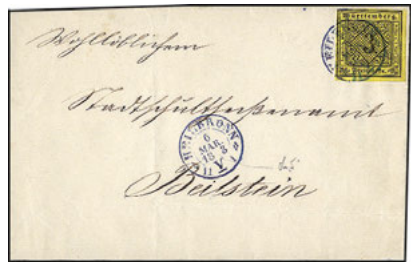 Württemberg
3
Wohllöblichem
Stadtschultheißenamt
HEILBRONN
6
MÄR.
18 3
Beilstein